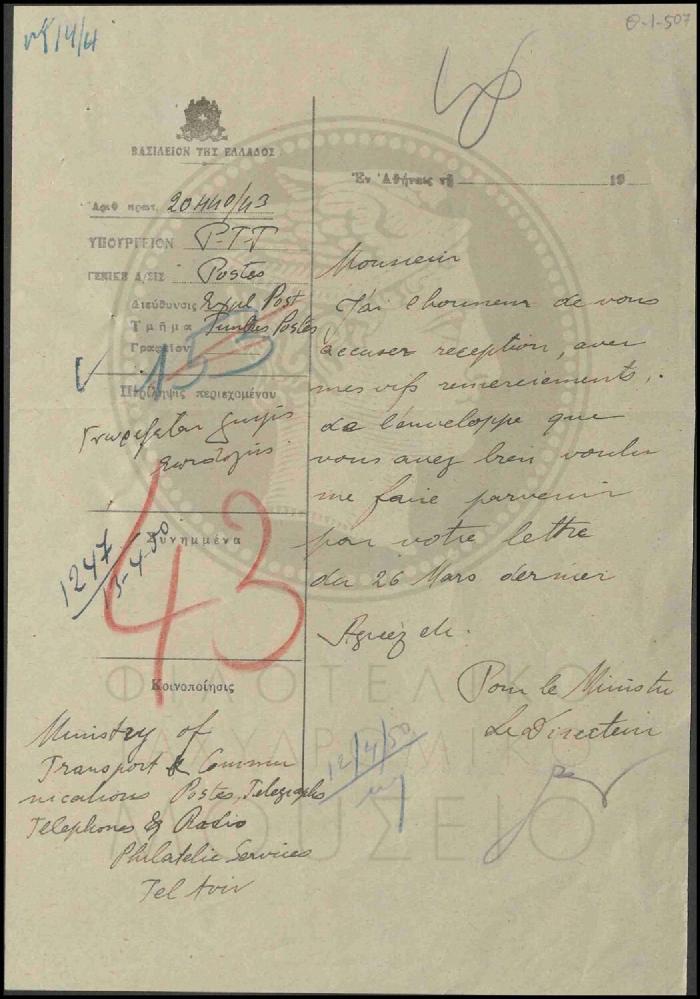 Θ-1-507
14/4
ΒΑΣΙΛΕΙΟΝ ΤΗΣ ΕΛΛΑΔΟΣ
Ἐν Ἀθήναις τῇ 19
Ἀριθ πρωτ. 20440/43
ΥΠΟΥΡΓΕΙΟΝ P.T.T
ΓΕΝΙΚΗ Δ/ΣΙΣ Postes
Διεύθυνσις Expl Post
Τμῆμα Timbres Postes
Γραφεῖον
153
Περίληψις περιεχομένου
Συνημμένα
1247
13-4-50
43
Κοινοποίησις
Ministry of
Transport & Commu
nications Postes, Telegraphs
Telephones & Radio
Philatelic Services
Tel Aviv
Monsieur
J'ai l'honneur de vous
accuser reception, avec
mes vifs remerciements,
de l'enveloppe que
vous avez bien voulu
me faire parvenir
par votre lettre
du 26 Mars dernier
Agréez etc.
Pour le Ministre
Le Directeur
12/4/50
ΦΙΛΟΤΕΛΙΚΟ
ΤΑΧΥΔΡΟΜΙΚΟ
ΜΟΥΣΕΙΟ